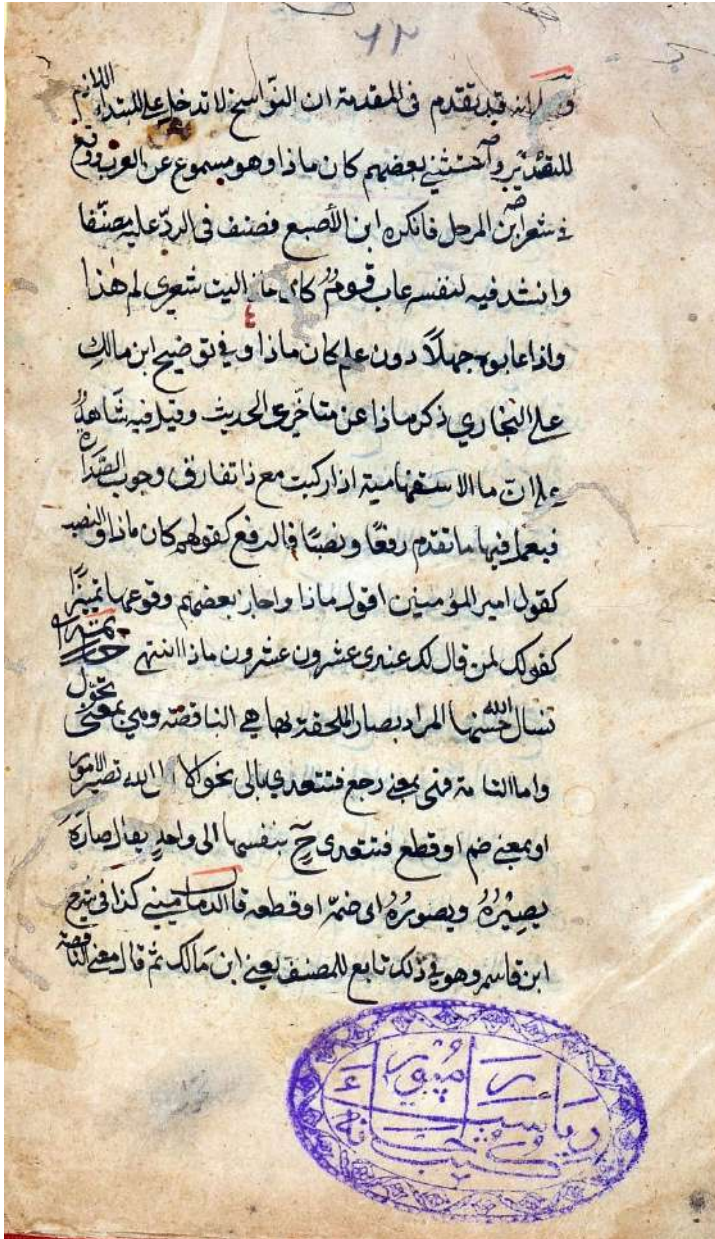 ٦٢
انه قد تقدم فى المقدمة ان النواسخ لا تدخل على المبتداء اللازم
للتصدير واستثنى بعضهم كان ماذا وهو مسموع عن العرب ووقع
فے شعر ابن المرحل فانكره ابن الأصبع فصنف فى الردّ عليه مصنّفا
وانشد فيه لنفسه عاب قومٌ كان ماذا ليت شعرى لم هٰذا
واذا عابوه جهلاً دون علم كان ماذا وفے توضيح ابن مالكٍ
علے البخاري ذكر ماذا عن متاخّرى الحديث وقيل فيه شاهدٌ
علے انّ ما الاستفهامية اذا ركبت مع ذا تفارق وجوب الصّدارة
فيعمل فيها ما تقدم رفعًا ونصبًا فالرفع كقولهم كان ماذا والنصب
كقول امير المؤمنين اقول ماذا واجاز بعضهم وقوعها تميزًا
كقولك لمن قال لك عندى عشرون عشرون ماذا انتهى
نسال الله حسنها المراد بصار الملحقة بها هي الناقصة وهي بمعنى تحوّل
واما التامة فهى بمعنے رجع فتتعدى بالى نحو الا الى الله تصير الامور
او بمعنى ضم او قطع فتتعدى حٓ بنفسها الى واحدٍ يقال صارَهٗ
يصِيْرُهٗ ويصورُهٗ اى ضمّه او قطعه قال الدمامينے كذا فى شرح
ابن قاسم وهو فے ذلك تابع للمصنف يعنے ابن مَالك ثم قال معنے الناقصة
رياست رامپور
كتب خانه